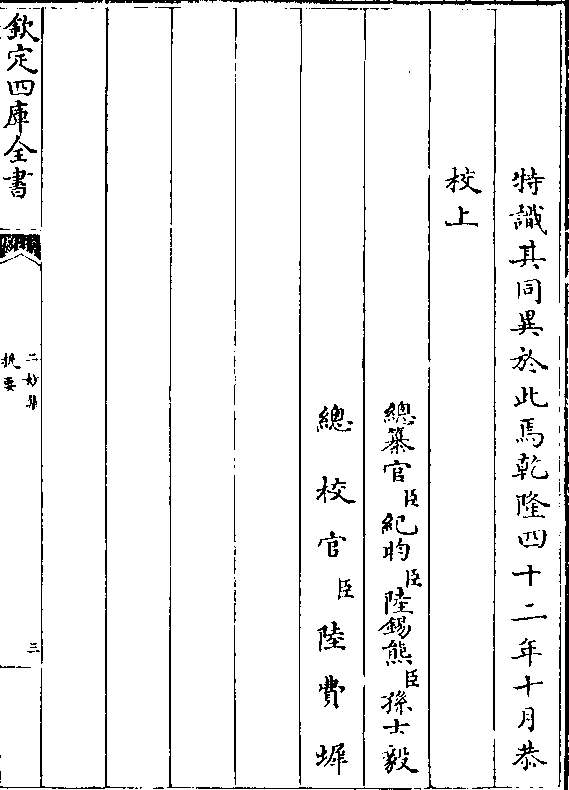 特識其同異於此焉乾隆四十二年十月恭
校上
總纂官臣紀昀臣陸錫熊臣孫士毅
總校官臣陸費墀
欽定四庫全書
二妙集
提要
三